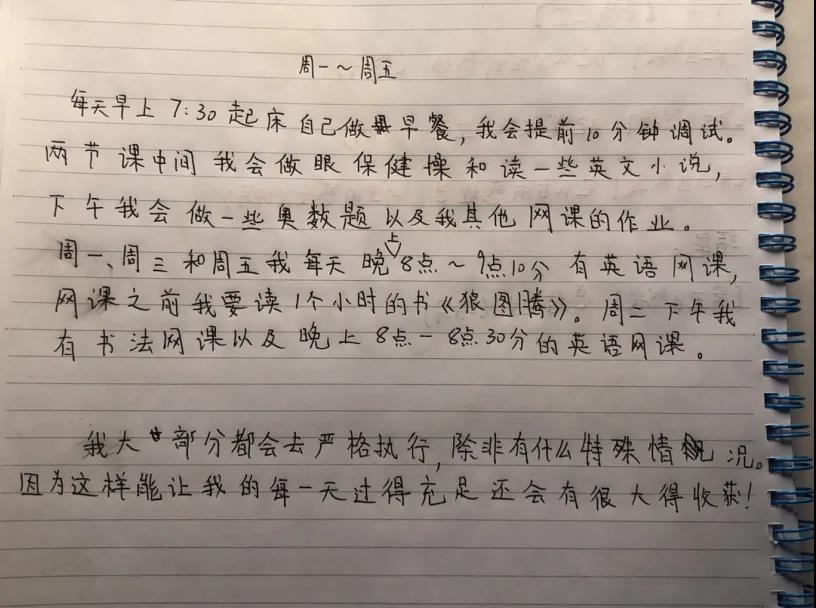 周一～周五
每天早上 7:30 起床自己做早餐，我会提前10分钟调试。
两节课中间我会做眼保健操和读一些英文小说，
下午我会做一些奥数题以及我其他网课的作业。
周一、周三和周五我每天晚上8点～9点10分有英语网课，
网课之前我要读1个小时的书《狼图腾》。周二下午我
有书法网课以及晚上8点－8点30分的英语网课。
我大部分都会去严格执行，除非有什么特殊情况。
因为这样能让我的每一天过得充足还会有很大得收获！